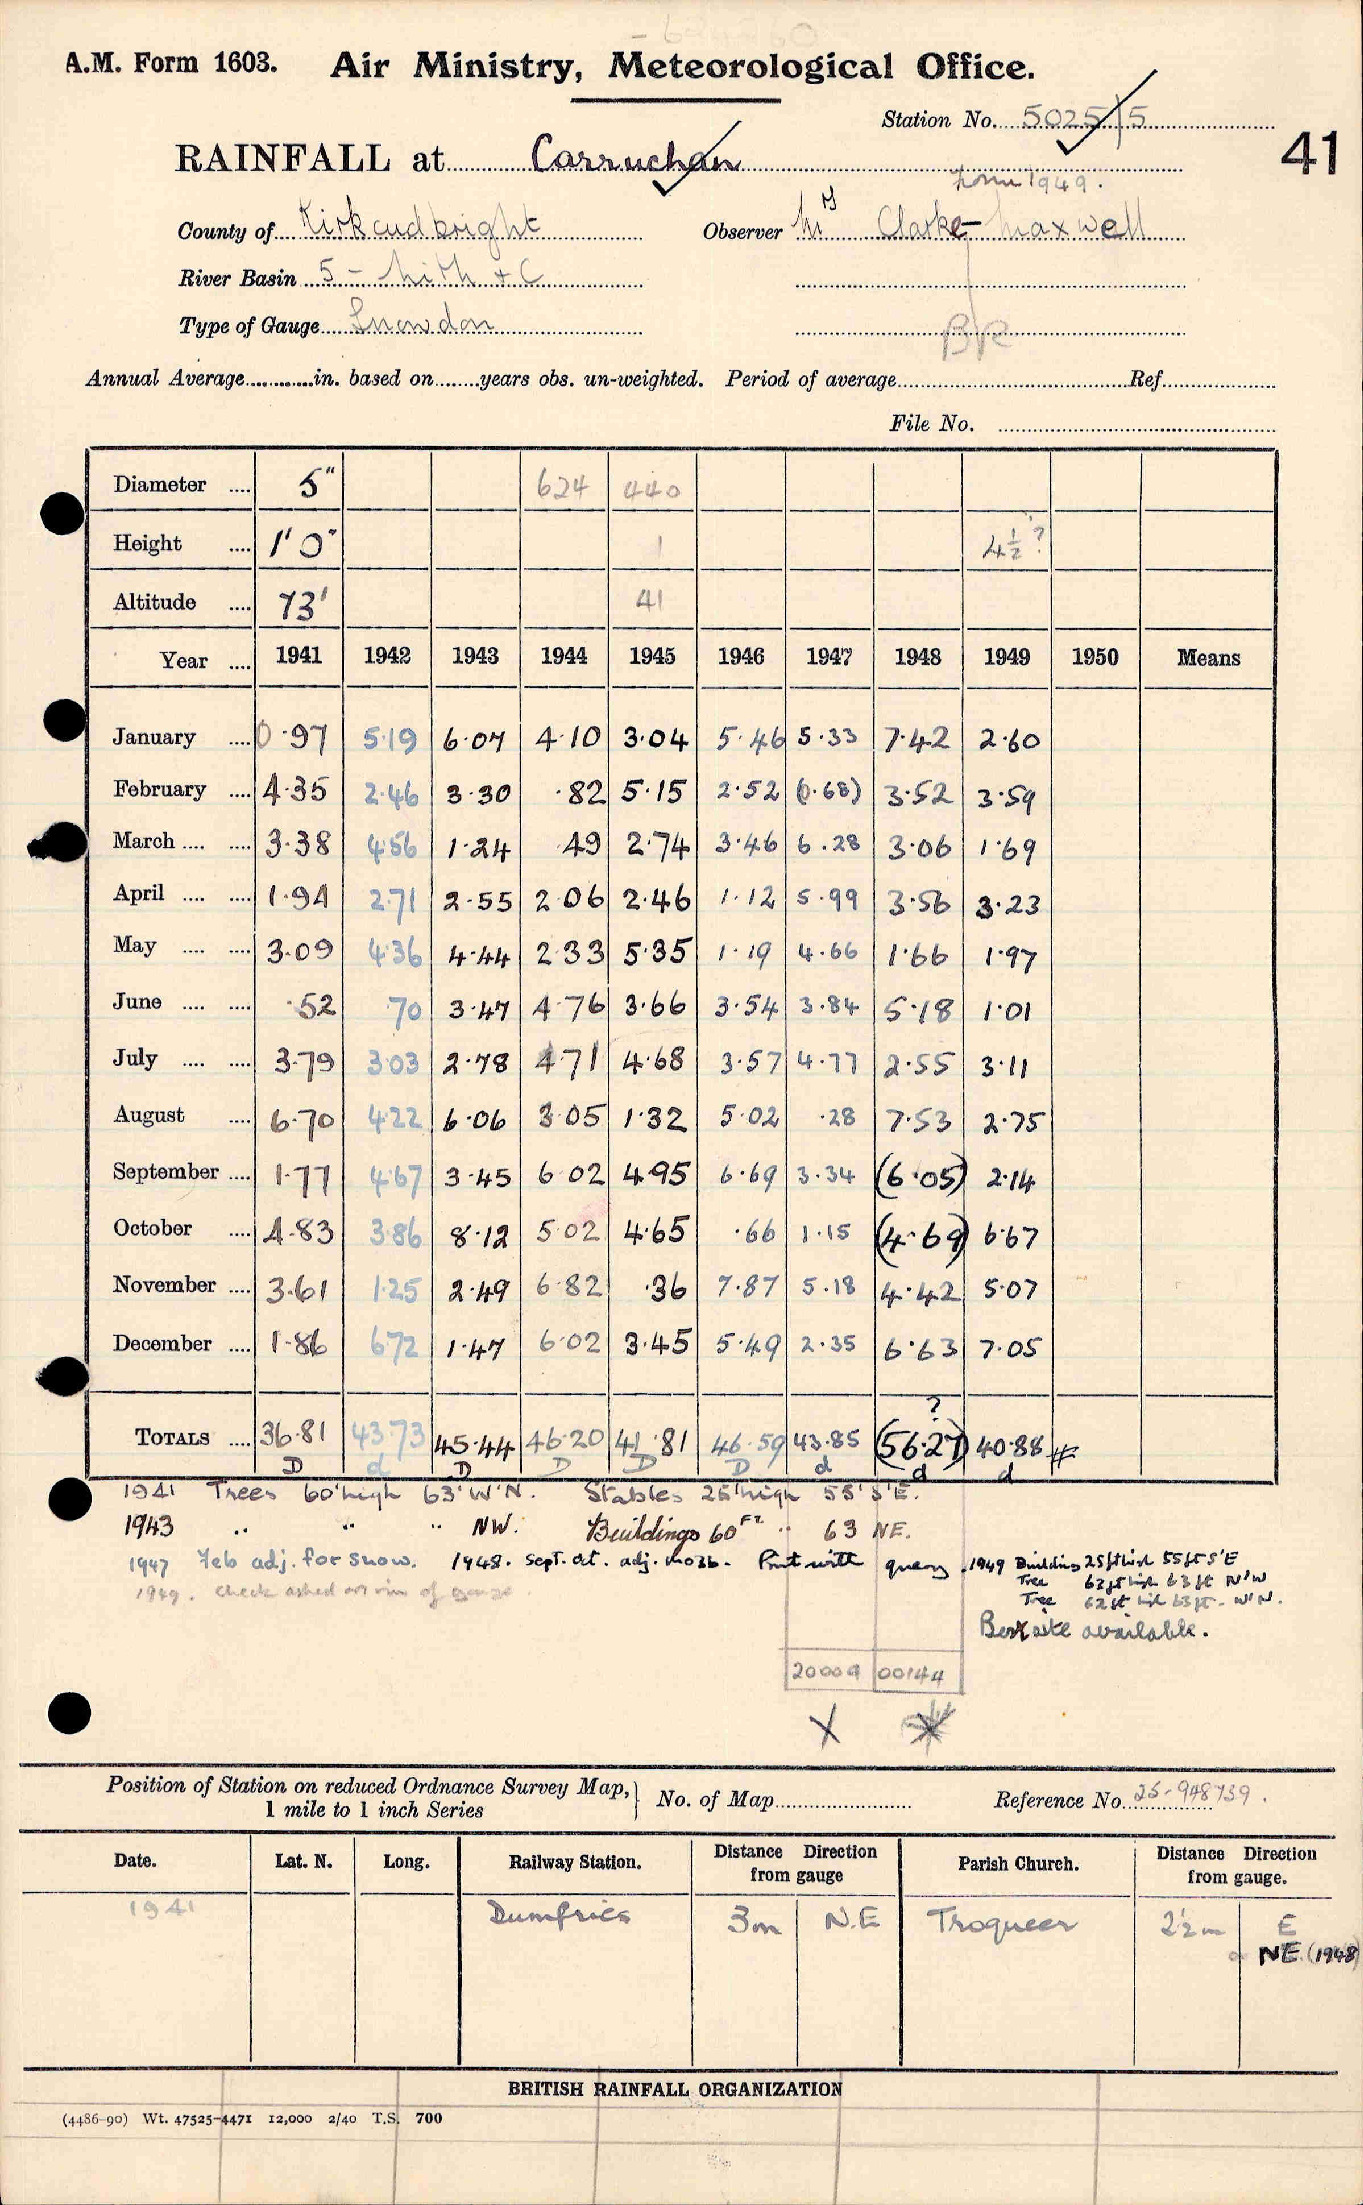 A.M. Form 1603. Air Ministry, Meteorological Office.
Station No. 5025/5
41
RAINFALL at Carruchan
from 1949.
County of Kirkcudbright Observer Mrs Clarke-Maxwell
River Basin 5 - Nith + C
Type of Gauge Snowdon BR
Annual Average in. based on years obs. un-weighted. Period of average Ref.
File No.
Diameter .... 5" 624 440
Height .... 1'0" 1 4½?
Altitude .... 73' 41
Year .... 1941 1942 1943 1944 1945 1946 1947 1948 1949 1950 Means
January .... 0.97 5.19 6.07 4.10 3.04 5.46 5.33 7.42 2.60
February .... 4.35 2.46 3.30 .82 5.15 2.52 (0.68) 3.52 3.59
March .... .... 3.38 4.56 1.24 .49 2.74 3.46 6.28 3.06 1.69
April .... .... 1.94 2.71 2.55 2.06 2.46 1.12 5.99 3.56 3.23
May .... .... 3.09 4.36 4.44 2.33 5.35 1.19 4.66 1.66 1.97
June .... .... .52 .70 3.47 4.76 3.66 3.54 3.84 5.18 1.01
July .... .... 3.79 3.03 2.78 4.71 4.68 3.57 4.77 2.55 3.11
August .... 6.70 4.22 6.06 3.05 1.32 5.02 .28 7.53 2.75
September .... 1.77 4.67 3.45 6.02 4.95 6.69 3.34 (6.05) 2.14
October .... 4.83 3.86 8.12 5.02 4.65 .66 1.15 (4.69) 6.67
November .... 3.61 1.25 2.49 6.82 .36 7.87 5.18 4.42 5.07
December .... 1.86 6.72 1.47 6.02 3.45 5.49 2.35 6.63 7.05
?
TOTALS .... 36.81 43.73 45.44 46.20 41.81 46.59 43.85 (56.27) 40.88 #
D d D D D D d d d
1941 Trees 60' high 63' W'N. Stables 25' high 55' S'E.
1943 " " " NW. Buildings 60FT " 63 NE.
1947 Feb adj. for snow. 1948. Sept. Oct. adj. mo3b. Print with query. 1949 Building 25ft high 55ft S'E
Tree 62ft high 63ft N'W
1949. Check asked on rim of gauge. Tree 62ft high 63ft - W'N.
Best site available.
20009 00144
X
Position of Station on reduced Ordnance Survey Map, 1 mile to 1 inch Series No. of Map Reference No. 25-948739.
Date. Lat. N. Long. Railway Station. Distance Direction from gauge Parish Church. Distance Direction from gauge.
1941 Dumfries 3m N.E Troqueer 2½m E
or NE (1948)
BRITISH RAINFALL ORGANIZATION
(4486-90) Wt. 47525-4471 12,000 2/40 T.S. 700